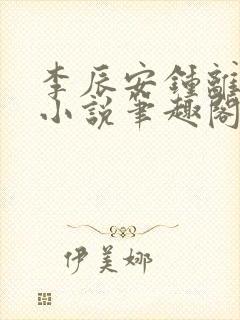 李辰安鍾離
小說筆趣閣
伊美娜